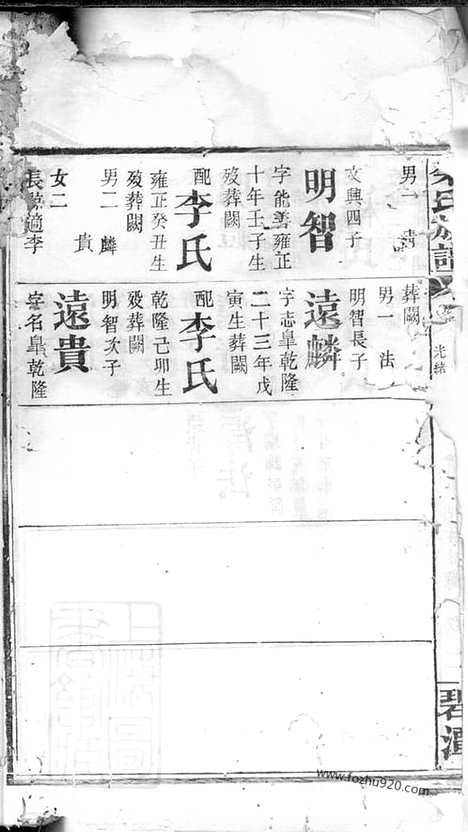 男一
文興四子
明智
字能善雍正
十年壬子生
歿葬闕
配李氏
雍正癸丑生
歿葬闕
男二 麟
貴
女二
長 適李
葬闕
男一 法
明智長子
遠麟
字志皐乾隆
二十三年戊
寅生葬闕
配李氏
乾隆己卯生
歿葬闕
明智次子
遠貴
字名皐乾隆
氏族譜
光緒
碧
www.fozhu920.com